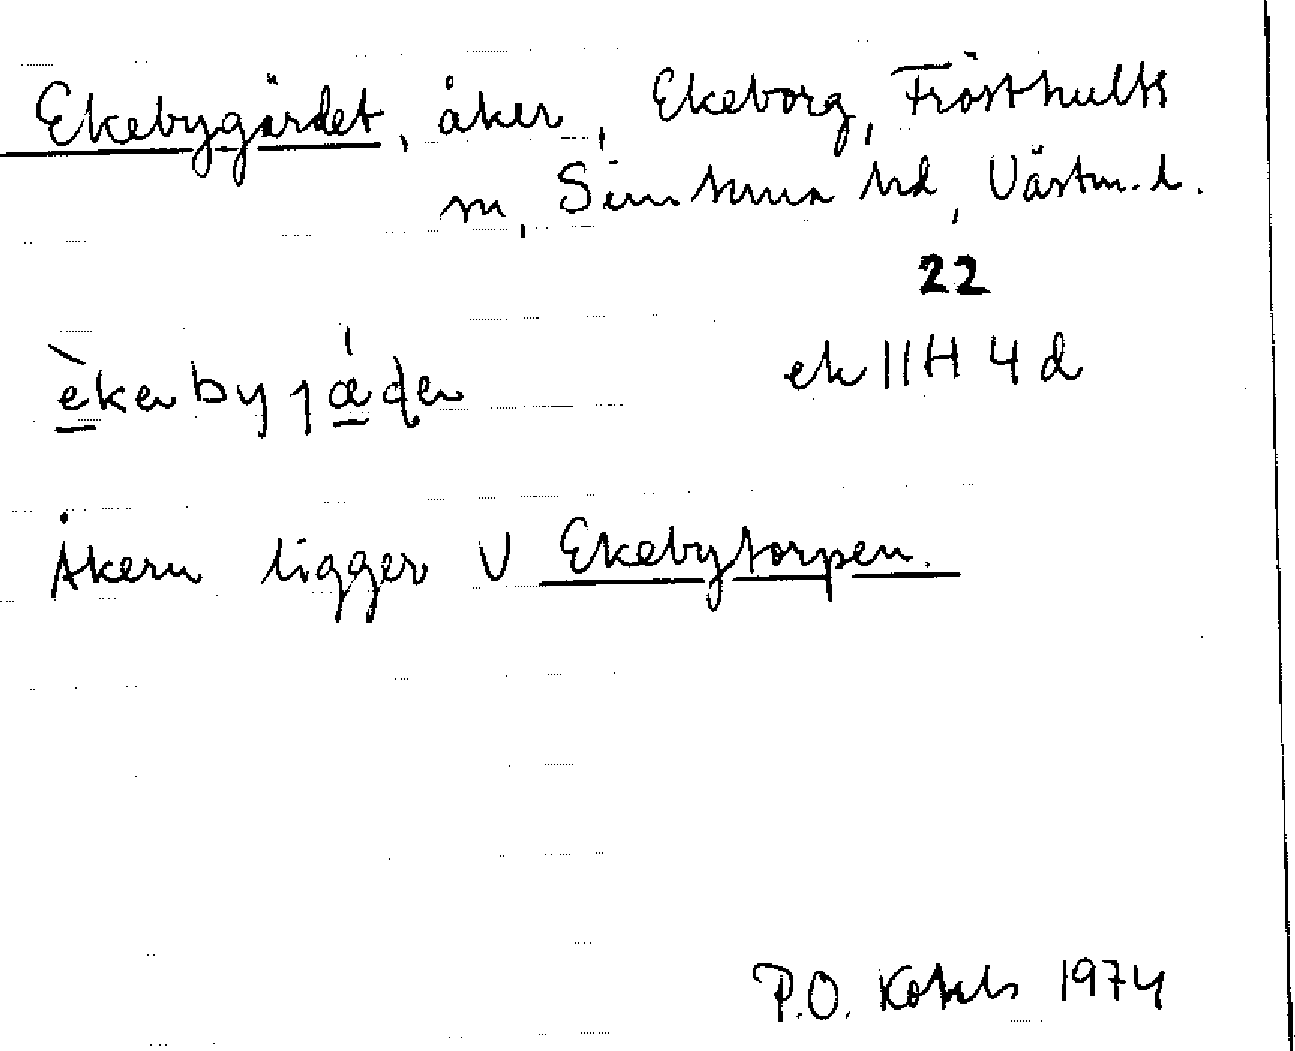 Ekebygärdet, åker, Ekeborg, Frösthults
sn, Simtuna hd, Västm. l.
22
ek 11H 4d
Åkern ligger V Ekebytorpen.
P.O. 1974